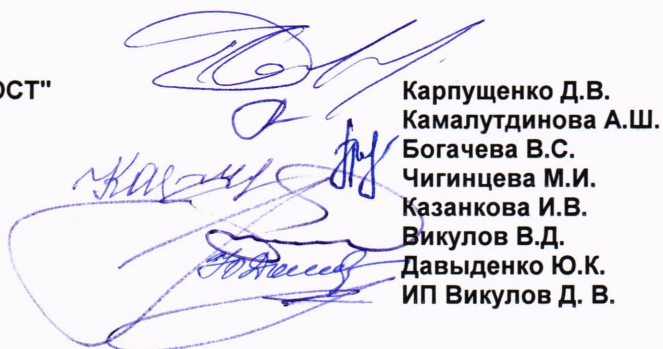 ОСТ"
Карпущенко Д.В.
Камалутдинова А.Ш.
Богачева В.С.
Чигинцева М.И.
Казанкова И.В.
Викулов В.Д.
Давыденко Ю.К.
ИП Викулов Д. В.